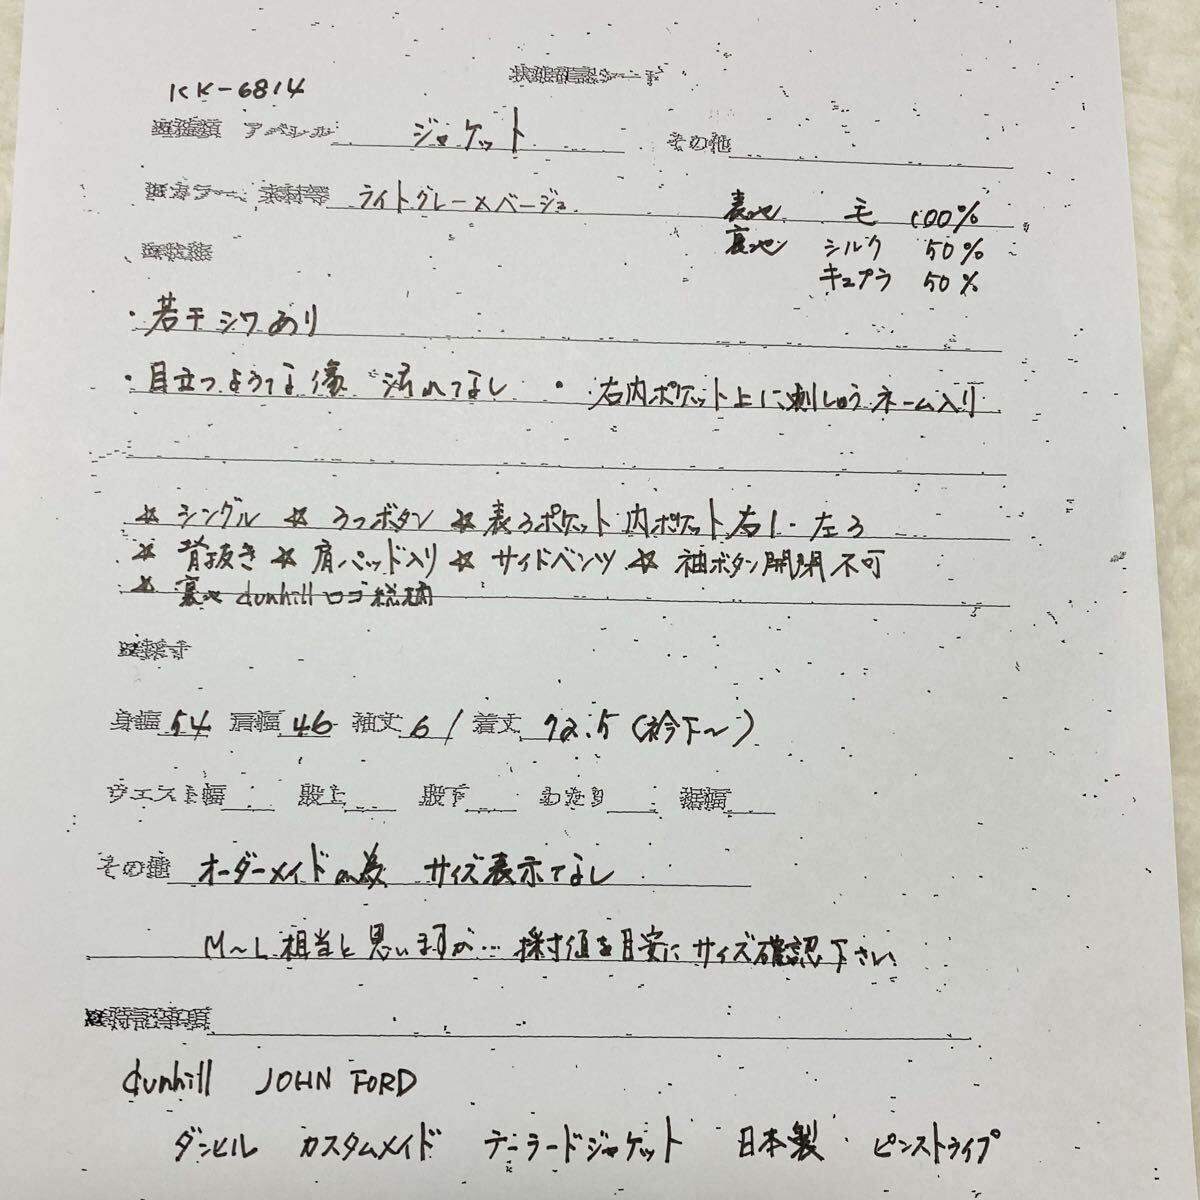 状態確認シート
KK-6814
アパレル ジャケット その他
カラー 素材等 ライトグレー×ベージュ 表地 毛 100%
裏地 シルク 50%
キュプラ 50%
・若干シワあり
・目立つような傷 汚れなし ・ 右内ポケット上に刺しゅうネーム入り
☆ シングル ☆ 3つボタン ☆ 表3ポケット 内ポケット右1・左3
☆ 背抜き ☆ 肩パッド入り ☆ サイドベンツ ☆ 袖ボタン開閉不可
☆ 裏地 dunhill ロゴ総柄
採寸
身幅 54 肩幅 46 袖丈 61 着丈 72.5 (衿下〜)
ウエスト幅 股上 股下 わたり 裾幅
その他 オーダーメイドの為 サイズ表示なし
M〜L相当と思いますが… 採寸値を目安にサイズ確認下さい
特記事項
dunhill JOHN FORD
ダンヒル カスタムメイド テーラードジャケット 日本製 ピンストライプ